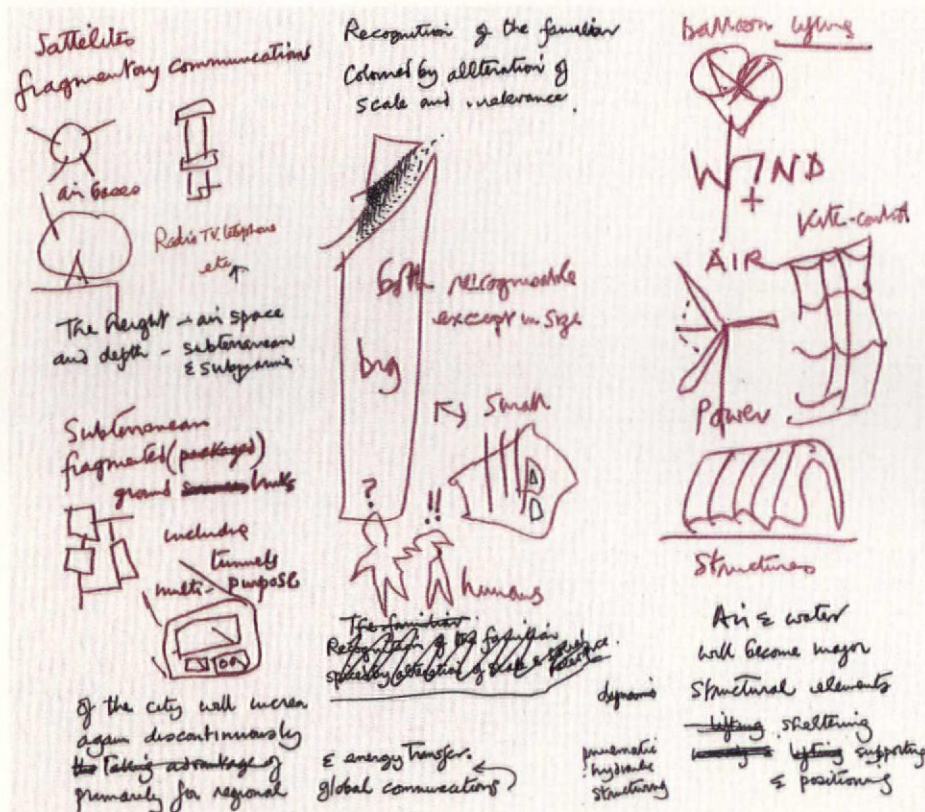 Sattelites
fragmentary communication
air bases
Radio TV telephone
etc
The height - air space
and depth - subterranean
& submarine
Subterranean
fragmated (packages)
ground links
include
tunnels
multi-purpose
of the city will increa
again discontinuously
Taking advantage of
primarily for regional
Recognition of the familiar
Colored by allteration of
scale and
both recognisable
except in size
big
small
?
!!
humans
The familiar
Recognition of the familiar
by alteration of scale &
& energy transfer.
global communications
balloon lifting
WIND
+
AIR
Kite-control
Power
Structures
Air & water
will become major
structural elements
lifting sheltering
lifting supporting
& positioning
dynamic
pneumatic
hydraulic
structuring